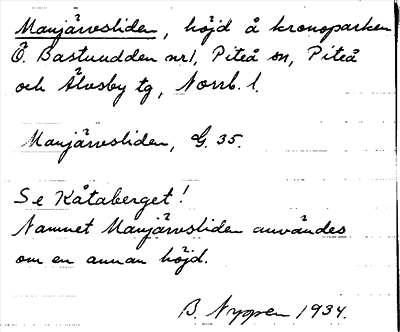 Manjärvsliden, höjd å kronoparken
Ö. Bastuudden nr 1, Piteå sn, Piteå
och Älvsby tg, Norrb. l.
Manjärvsliden, G. 35.
Se Kåtaberget!
Namnet Manjärvsliden användes
om en annan höjd.
B. Nyppen 1934.